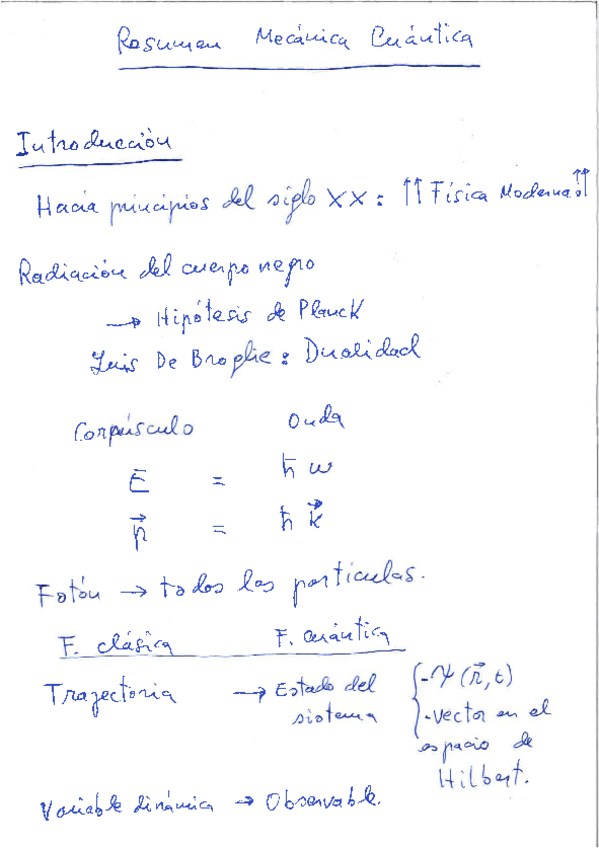 Resumen Mecánica Cuántica
Introducción
Hacia principios del siglo XX: ↑↑ Física Moderna ↑↑
Radiación del cuerpo negro
→ Hipótesis de Planck
Luis De Broglie: Dualidad
Corpúsculo Onda
E = ħ ω
p⃗ = ħ k⃗
Fotón → todas las partículas.
F. clásica F. cuántica
Trayectoria → Estado del sistema { - Ψ (r⃗, t)
- vector en el
espacio de
Hilbert.
Variable dinámica → Observable.